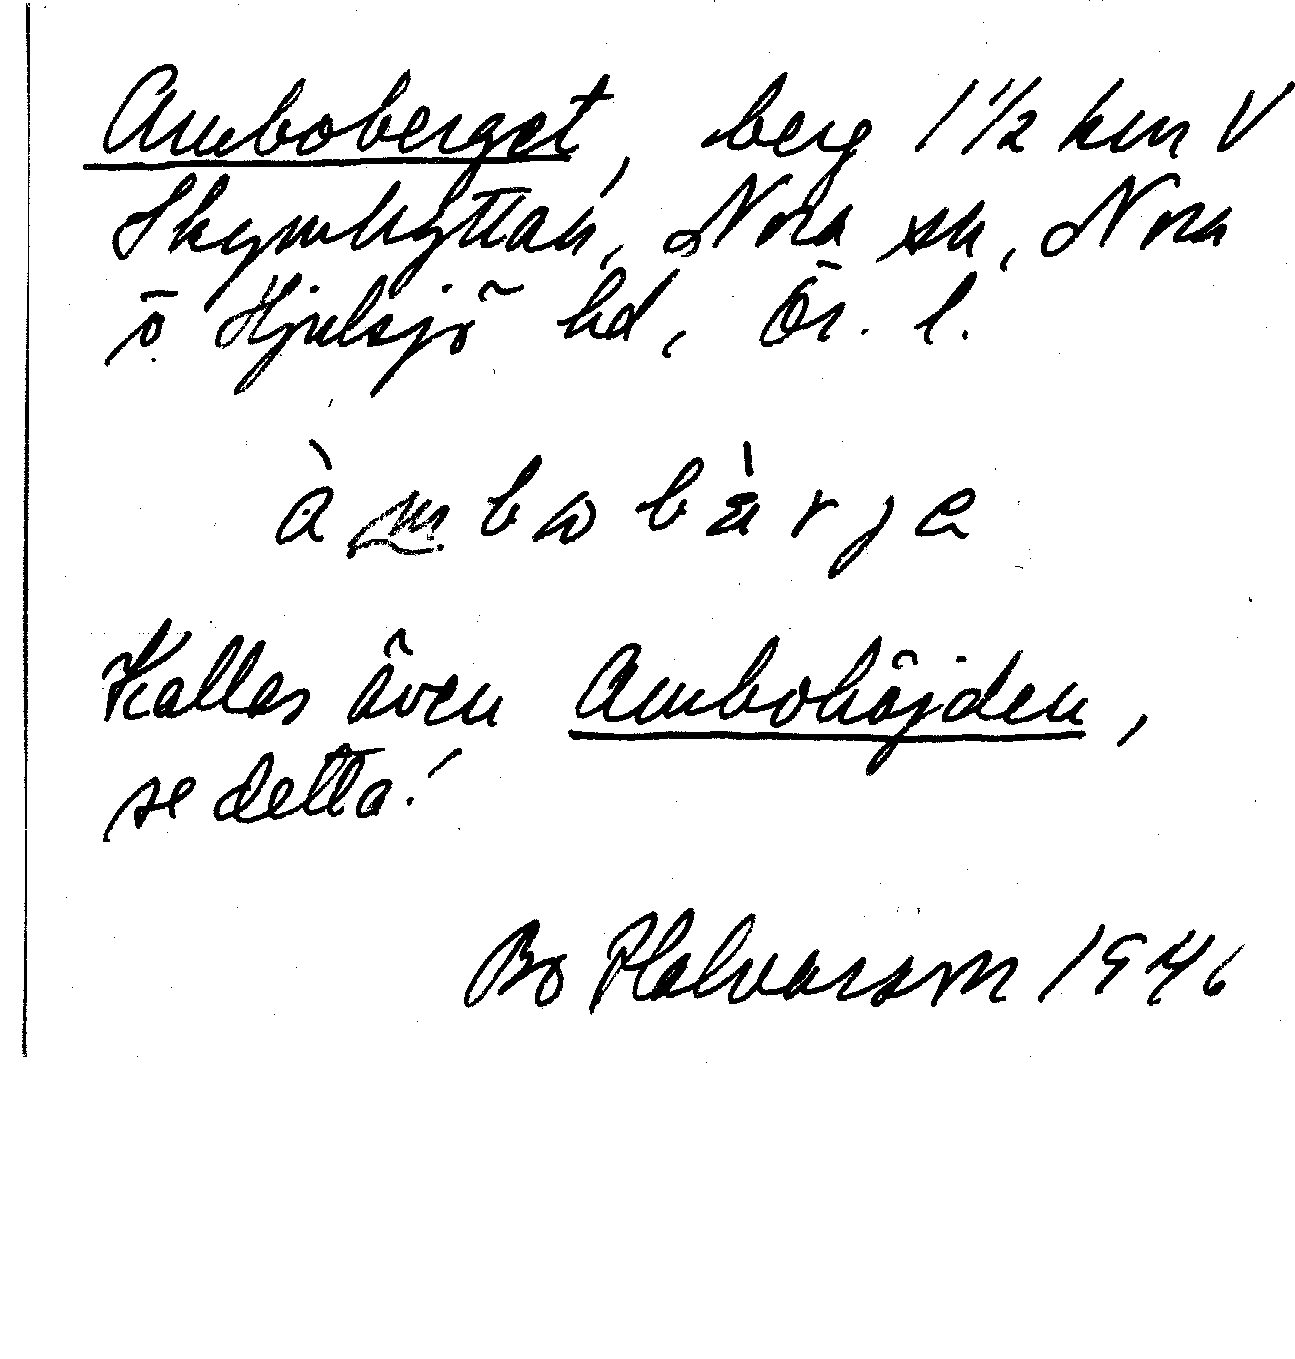 Amboberget, berg 1 1/2 km V
Skymhyttan, Nora sn, Nora
o Hjulsjö hd, Ör. l.
àmbωbὰrje
Kallas även Ambohöjden,
se detta!
Bo Halvarson 1946